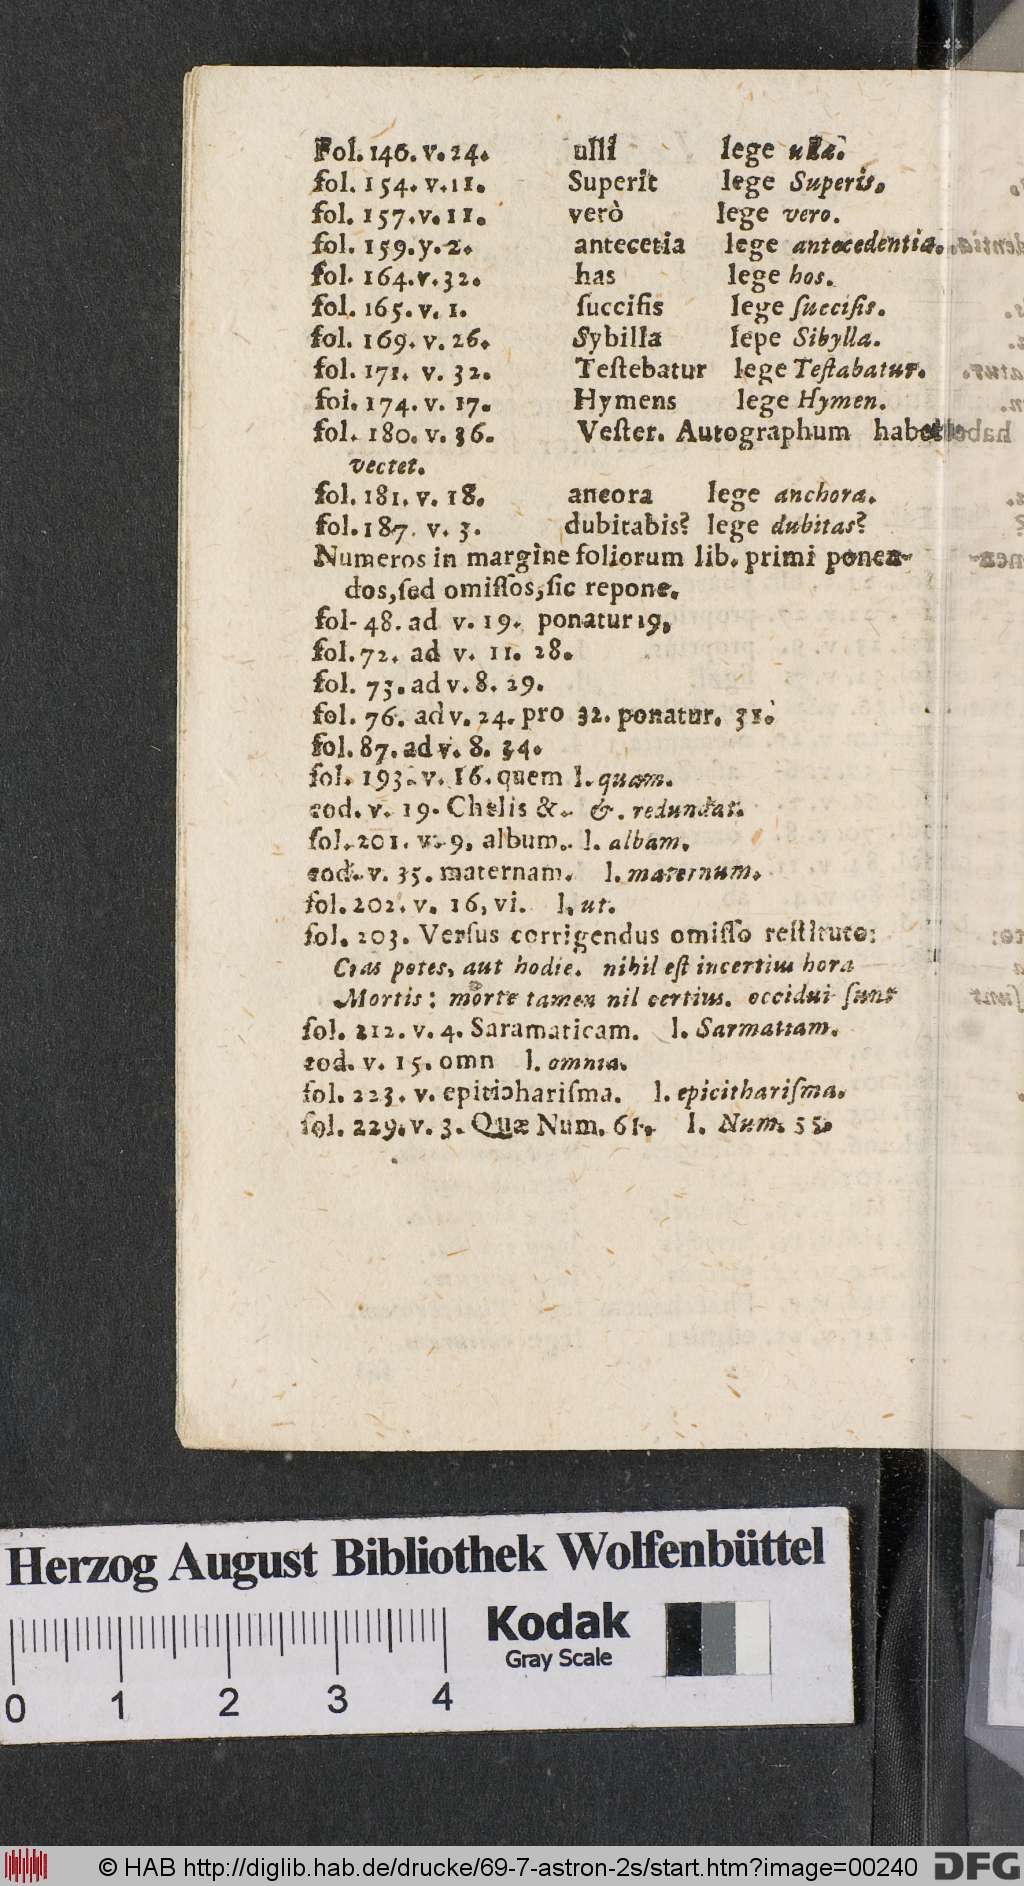 Fol. 146. v. 24. ulli lege ulla.
fol. 154. v. 11. Superit lege Superis.
fol. 157. v. 11. verò lege vero.
fol. 159. y. 2. antecetia lege antecedentia.
fol. 164. v. 32. has lege hos.
fol. 165. v. 1. ſuccifis lege ſucciſis.
fol. 169. v. 26. Sybilla lepe Sibylla.
fol. 171. v. 32. Teſtebatur lege Teſtabatur.
foi. 174. v. 17. Hymens lege Hymen.
fol. 180. v. 36. Veſter. Autographum habet
vectet.
fol. 181. v. 18. ancora lege anchora.
fol. 187. v. 3. dubitabis? lege dubitas?
Numeros in margine foliorum lib. primi ponen-
dos, ſed omiſſos, ſic repone.
fol- 48. ad v. 19. ponatur 19,
fol. 72. ad v. 11. 28.
fol. 73. ad v. 8. 29.
fol. 76. ad v. 24. pro 32. ponatur. 31.
fol. 87. ad v. 8. 34.
fol. 193. v. 16. quem l. quam.
eod. v. 19. Chelis &. &. redundat.
fol. 201. v. 9, album. l. albam.
eod. v. 35. maternam. l. maternum.
fol. 202. v. 16, vi. l. ut.
fol. 203. Verſus corrigendus omiſſo reſtituto:
Cras potes, aut hodie. nihil eſt incertius hora
Mortis: morte tamen nil certius. occidui ſunt
fol. 212. v. 4. Saramaticam. l. Sarmatiam.
eod. v. 15. omn l. omnia.
fol. 223. v. epitichariſma. l. epicithariſma.
fol. 229. v. 3. Quæ Num. 61. l. Num. 55.
Herzog August Bibliothek Wolfenbüttel
Kodak
Gray Scale
0 1 2 3 4
© HAB http://diglib.hab.de/drucke/69-7-astron-2s/start.htm?image=00240 DFG